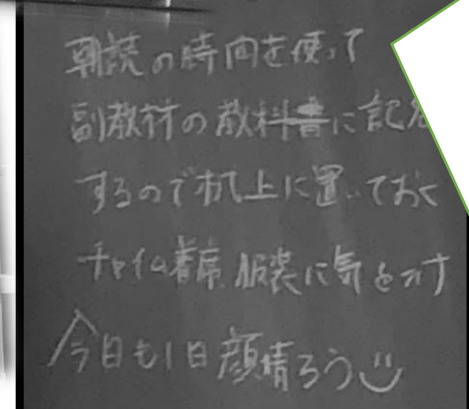 朝読の時間を使って
副教材の教科書に記名
するので机上に置いておく
チャイム着席 服装に気をつけ
今日も1日顔晴ろう